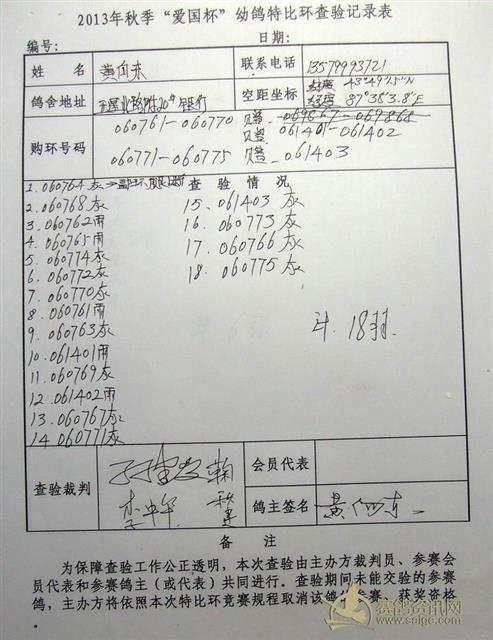 2013年秋季“爱国杯”幼鸽特比环查验记录表
编号： 日期：
姓名 黄向东 联系电话 13579993721
鸽舍地址 空距坐标 43°49'15"N
87°38'3.8"E
购环号码 060761-060770 赠 069867-069868
赠 061401-061402
060771-060775 赠 061403
查验情况
1.060764灰
2.060768灰
3.060762雨
4.060765雨
5.060774灰
6.060772灰
7.060770灰
8.060761雨
9.060763灰
10.061401雨
11.060769灰
12.061402雨
13.060767灰
14.060771灰
15.061403灰
16.060773灰
17.060766灰
18.060775灰
共18羽.
查验裁判 会员代表
鸽主签名
备注
为保障查验工作公正透明，本次查验由主办方裁判员、参赛会
员代表和参赛鸽主（或代表）共同进行。查验期间未能交验的参赛
鸽，主办方将依照本次特比环竞赛规程取消该鸽的参赛、获奖资格
赛鸽资讯网
www.saige.com